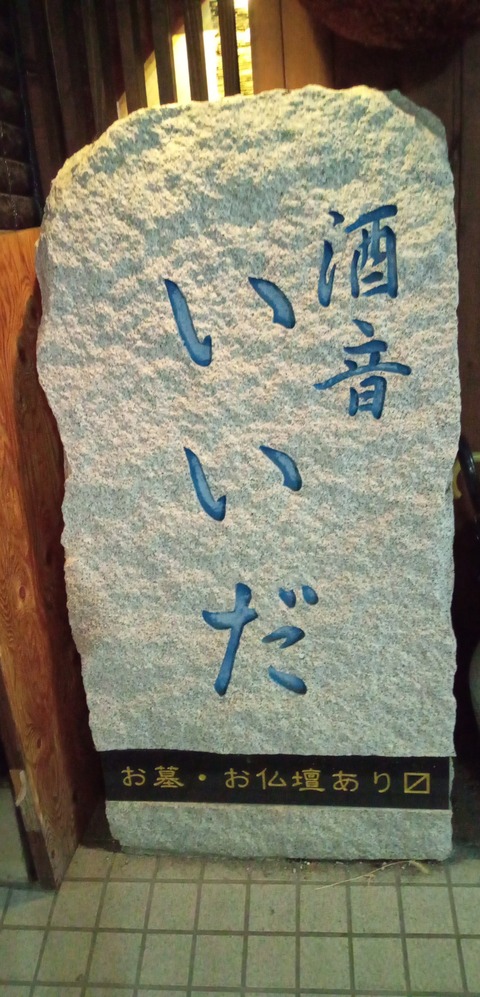 酒音
いいだ
お墓・お仏壇あり〼